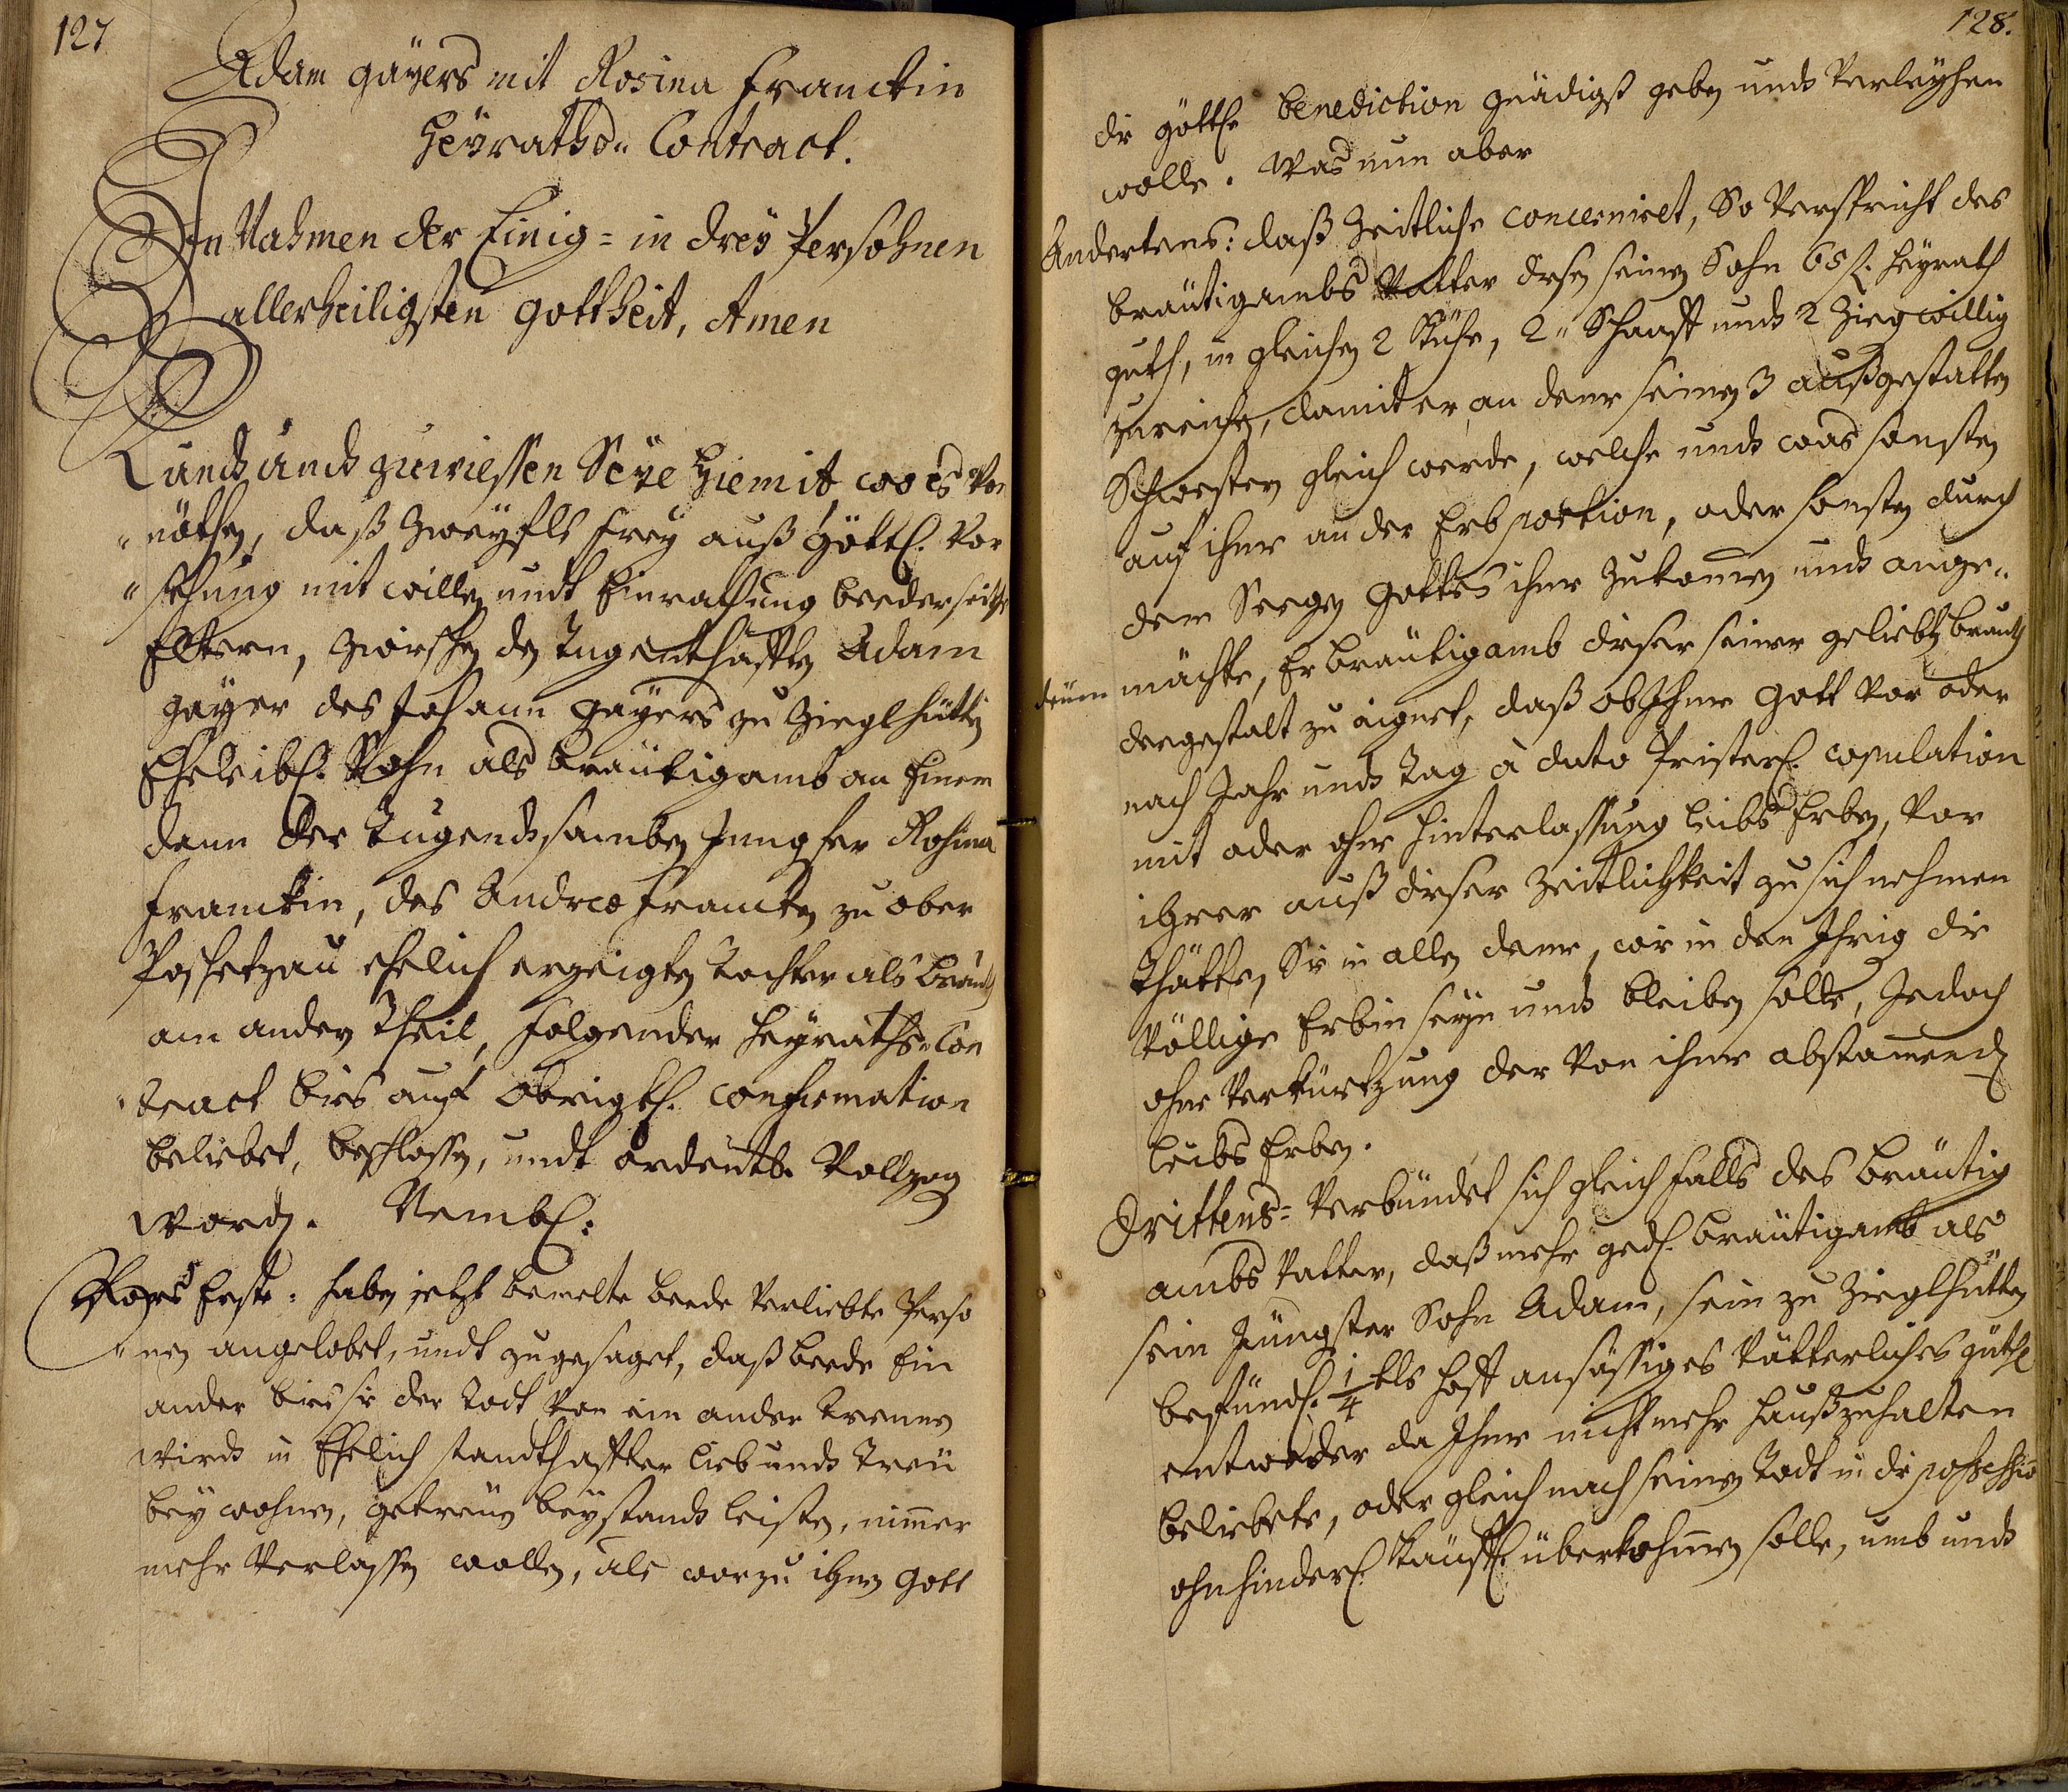 127
Adam gäÿers mit Rosina Franckin
Heÿraths„ Contract.
In Nahmen der Einig= in dreÿ Persohnen
allerheiligsten Gottheit, Amen
Kundt undt zuwiessen Seÿe hiemit, wo es Von
„nöthen, daß Zweÿfls freÿ auß Göttl. Vor
„sehung mit willen undt Einrathung beederseiths
Eltern, Zwischen den Tugenthafften Adam
gäÿer des Johann gäÿers zu Zieglhütten
Eheleibl. Sohn als bräutigamb an Einem
dann der Tugendtsamben Jungfer Rosina
Franckin, des Andreæ Francken zu ober
Poschetzau ehelich erzeigten Tochter als brauth
am andern Theil, folgender Heÿraths„Con
„tract bies auf obrigkl. confirmation
beliebet, beschlossen, undt ordentl. Vollzog
worden. Nembl:
Vors Erste: haben jetzt bemelte beede Verliebte Perso
„nen angelobet, undt zugesaget, daß beede Ein
ander bies sie der Todt Von ein ander trennen
wirdt in Ehelich standthaffter lieb undt treü
beÿ wohnen, getreüen beÿstandt leisten, nimmer
mehr Verlassen wollen, als worzu ihnen Gott
128.
die göttl. benediction gnädigst geben undt Verleÿhen
wolle. Was nun aber
Andertens: daß Zeitliche concerniret, So Verspricht des
bräutigambs Vatter diesen seinen Sohn 65 f. Heÿrath
guth, in gleichen 2 Kühe, 2„ Schaaff undt 2 Zieg willig
zureichen, damit er, an denen seinen 3 außgestatten
Schwestern gleich werde, welche undt was sonsten
auf ihne an der Erb portion, oder sonsten durch
dem Seegen Gottes ihne Zukommen undt ange„
deüen möchte, Er bräutigamb dieser seiner geliebten brauth
dergestalt zu aignet, daß ob Ihne Gott Vor oder
nach Jahr undt Tag à dato Priesterl. copulation
mit oder ohne hinterlassung leibs Erben, Vor
ihrer auß dieser Zeitlichkeit zu sich nehmen
thätte, Sie in allen deme, wie in den Ihrig die
Völlige Erbin seÿn undt bleiben solle, Jedoch
ohne Verkürtzung der Von ihne abstamend
leibs Erben.
Drittens= Verbündet sich gleichfalls des bräutig
ambs Vatter, daß mehr ged. bräutigamb als
sein Jüngster Sohn Adam, sein zu Zieglhütten
befündl. 1/4 tls Hoff ansässiges Vätterliches güthl
entweder da Ihne nicht mehr haußzuhalten
beliebete, oder gleich nach seinem Todt in die possession
ohnhinderl. käuffl. überkohmen solle, umb undt